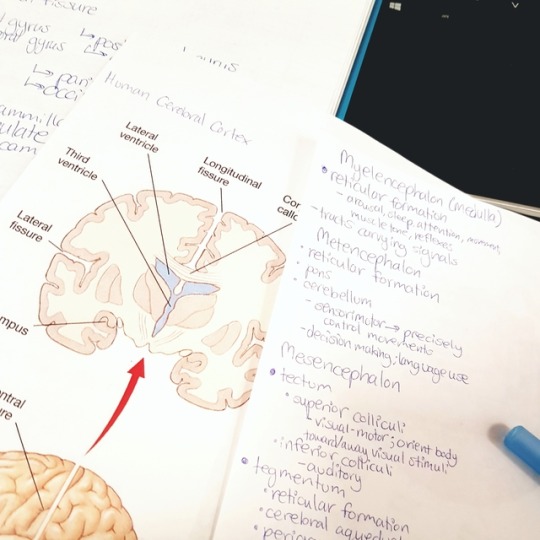 fissure
gyrus
gyrus
Human Cerebral Cortex
Lateral
ventricle
Third
ventricle
Longitudinal
fissure
Lateral
fissure
Myelencephalon (medulla)
reticular formation
- arousal, sleep, attention, movement,
muscle tone, reflexes
- tracts carrying signals
Metencephalon
reticular formation
pons
cerebellum
- sensorimotor → precisely
control movements
- decision making; language use
Mesencephalon
tectum
superior colliculi
- visual-motor; orient body
toward/away visual stimuli
inferior colliculi
- auditory
tegmentum
reticular formation
cerebral aqueduct